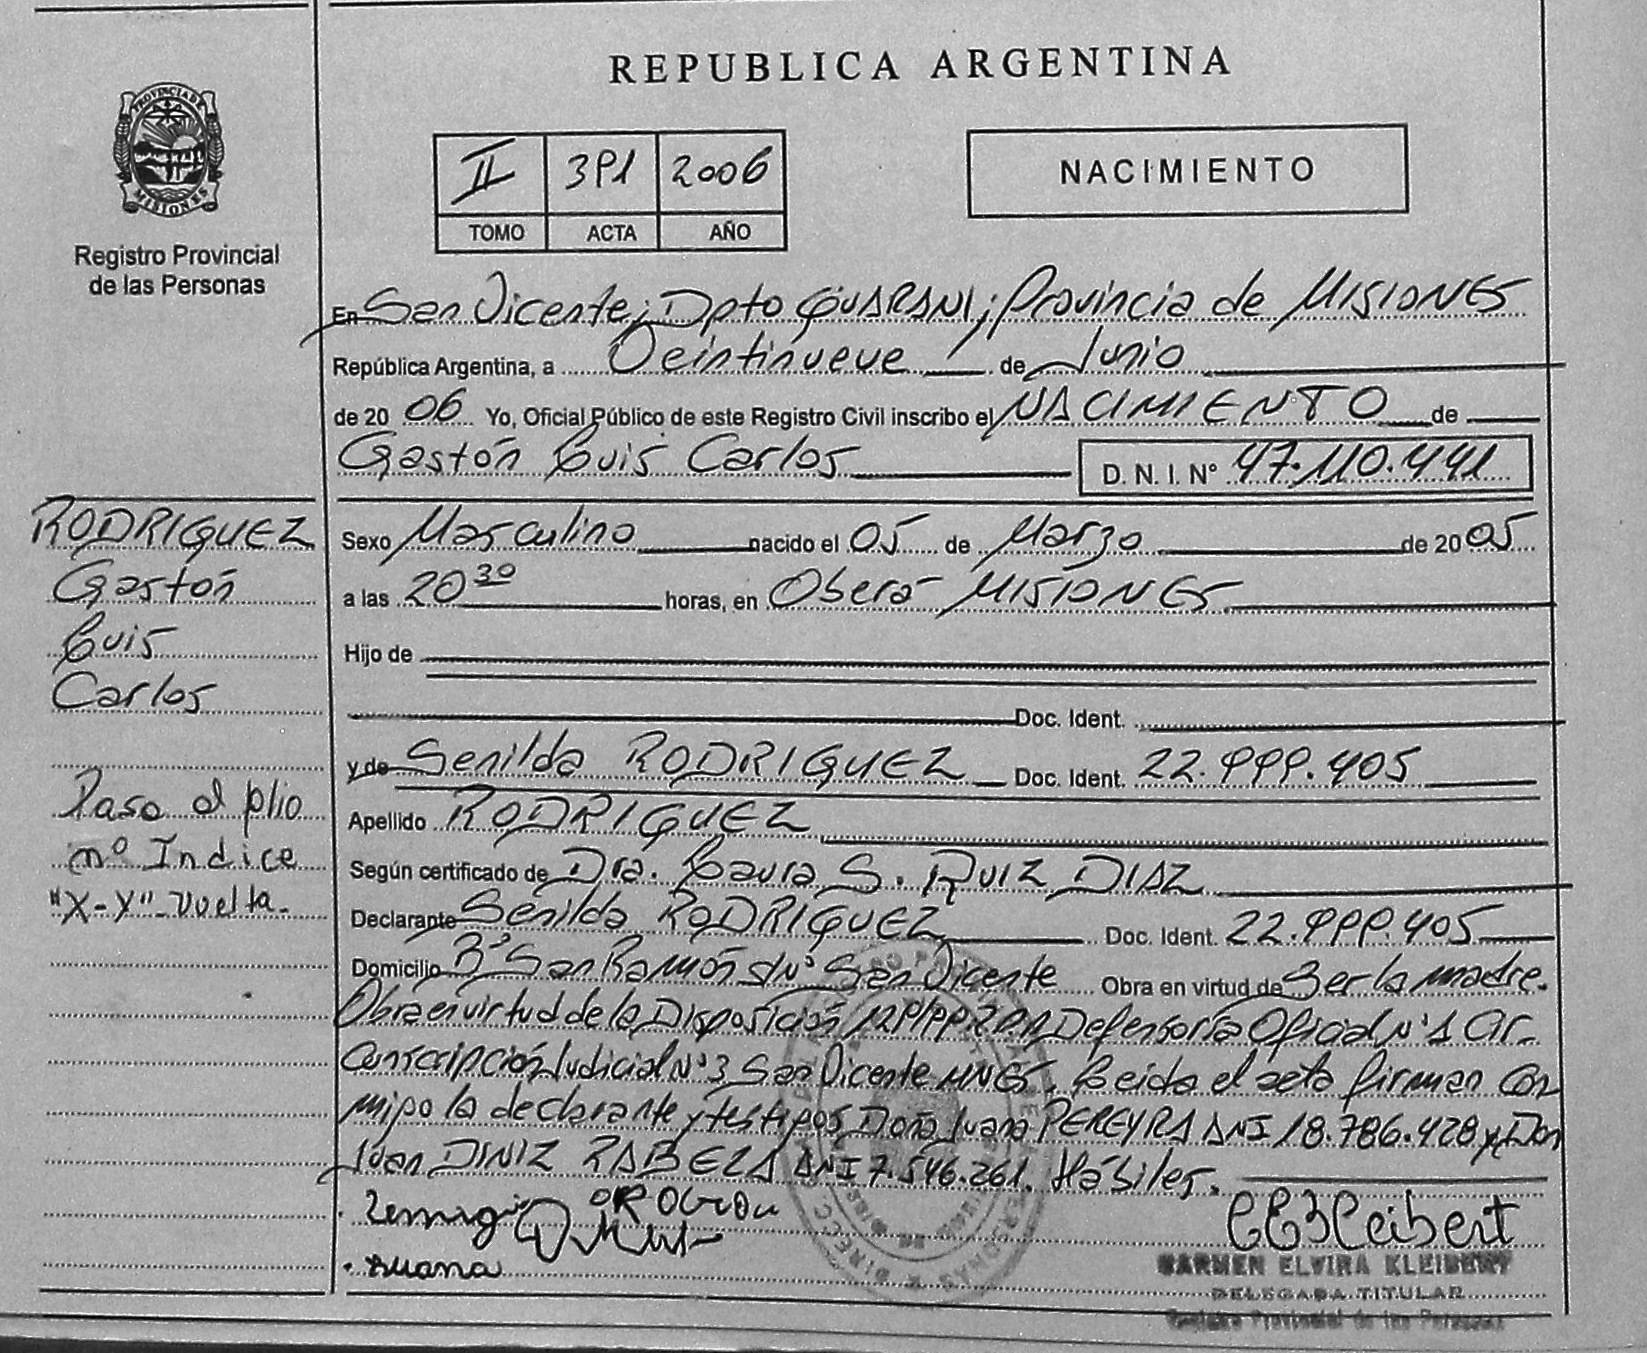 REPUBLICA ARGENTINA
PROVINCIA DE
MISIONES
Registro Provincial
de las Personas
II 391 2006
TOMO ACTA AÑO
NACIMIENTO
En San Vicente; Dpto GUARANI; Provincia de MISIONES
República Argentina, a Veintinueve de Junio
de 20 06 Yo, Oficial Público de este Registro Civil inscribo el NACIMIENTO de
Gastón Luis Carlos D. N. I. Nº 47.110.441
RODRIGUEZ
Gastón
Luis
Carlos
Paso al folio
nº Indice
"X-Y" Vuelta.
Sexo Masculino nacido el 05 de Marzo de 20 05
a las 20 30 horas, en Oberá MISIONES
Hijo de
Doc. Ident.
y de Senilda RODRIGUEZ Doc. Ident. 22.999.405
Apellido RODRIGUEZ
Según certificado de Dra. Laura S. RUIZ DIAZ
Declarante Senilda RODRIGUEZ Doc. Ident. 22.999.405
Domicilio Bº San Ramón s/Nº San Vicente Obra en virtud de Ser la madre.
Obra en virtud de la Disposición Defensoría Oficial Nº 1 Cir-
cunscripción Judicial Nº 3 San Vicente MNES. Leida el acta firman con
migo la declarante y testigos Doña Juana PEREYRA DNI 18.786.428 y Don
Juan DINIZ RABELA DNI 7.546.261. Hábiles.
CEKleibert
Juana
CARMEN ELVIRA KLEIBERT
DELEGADA TITULAR
Registro Provincial de las Personas